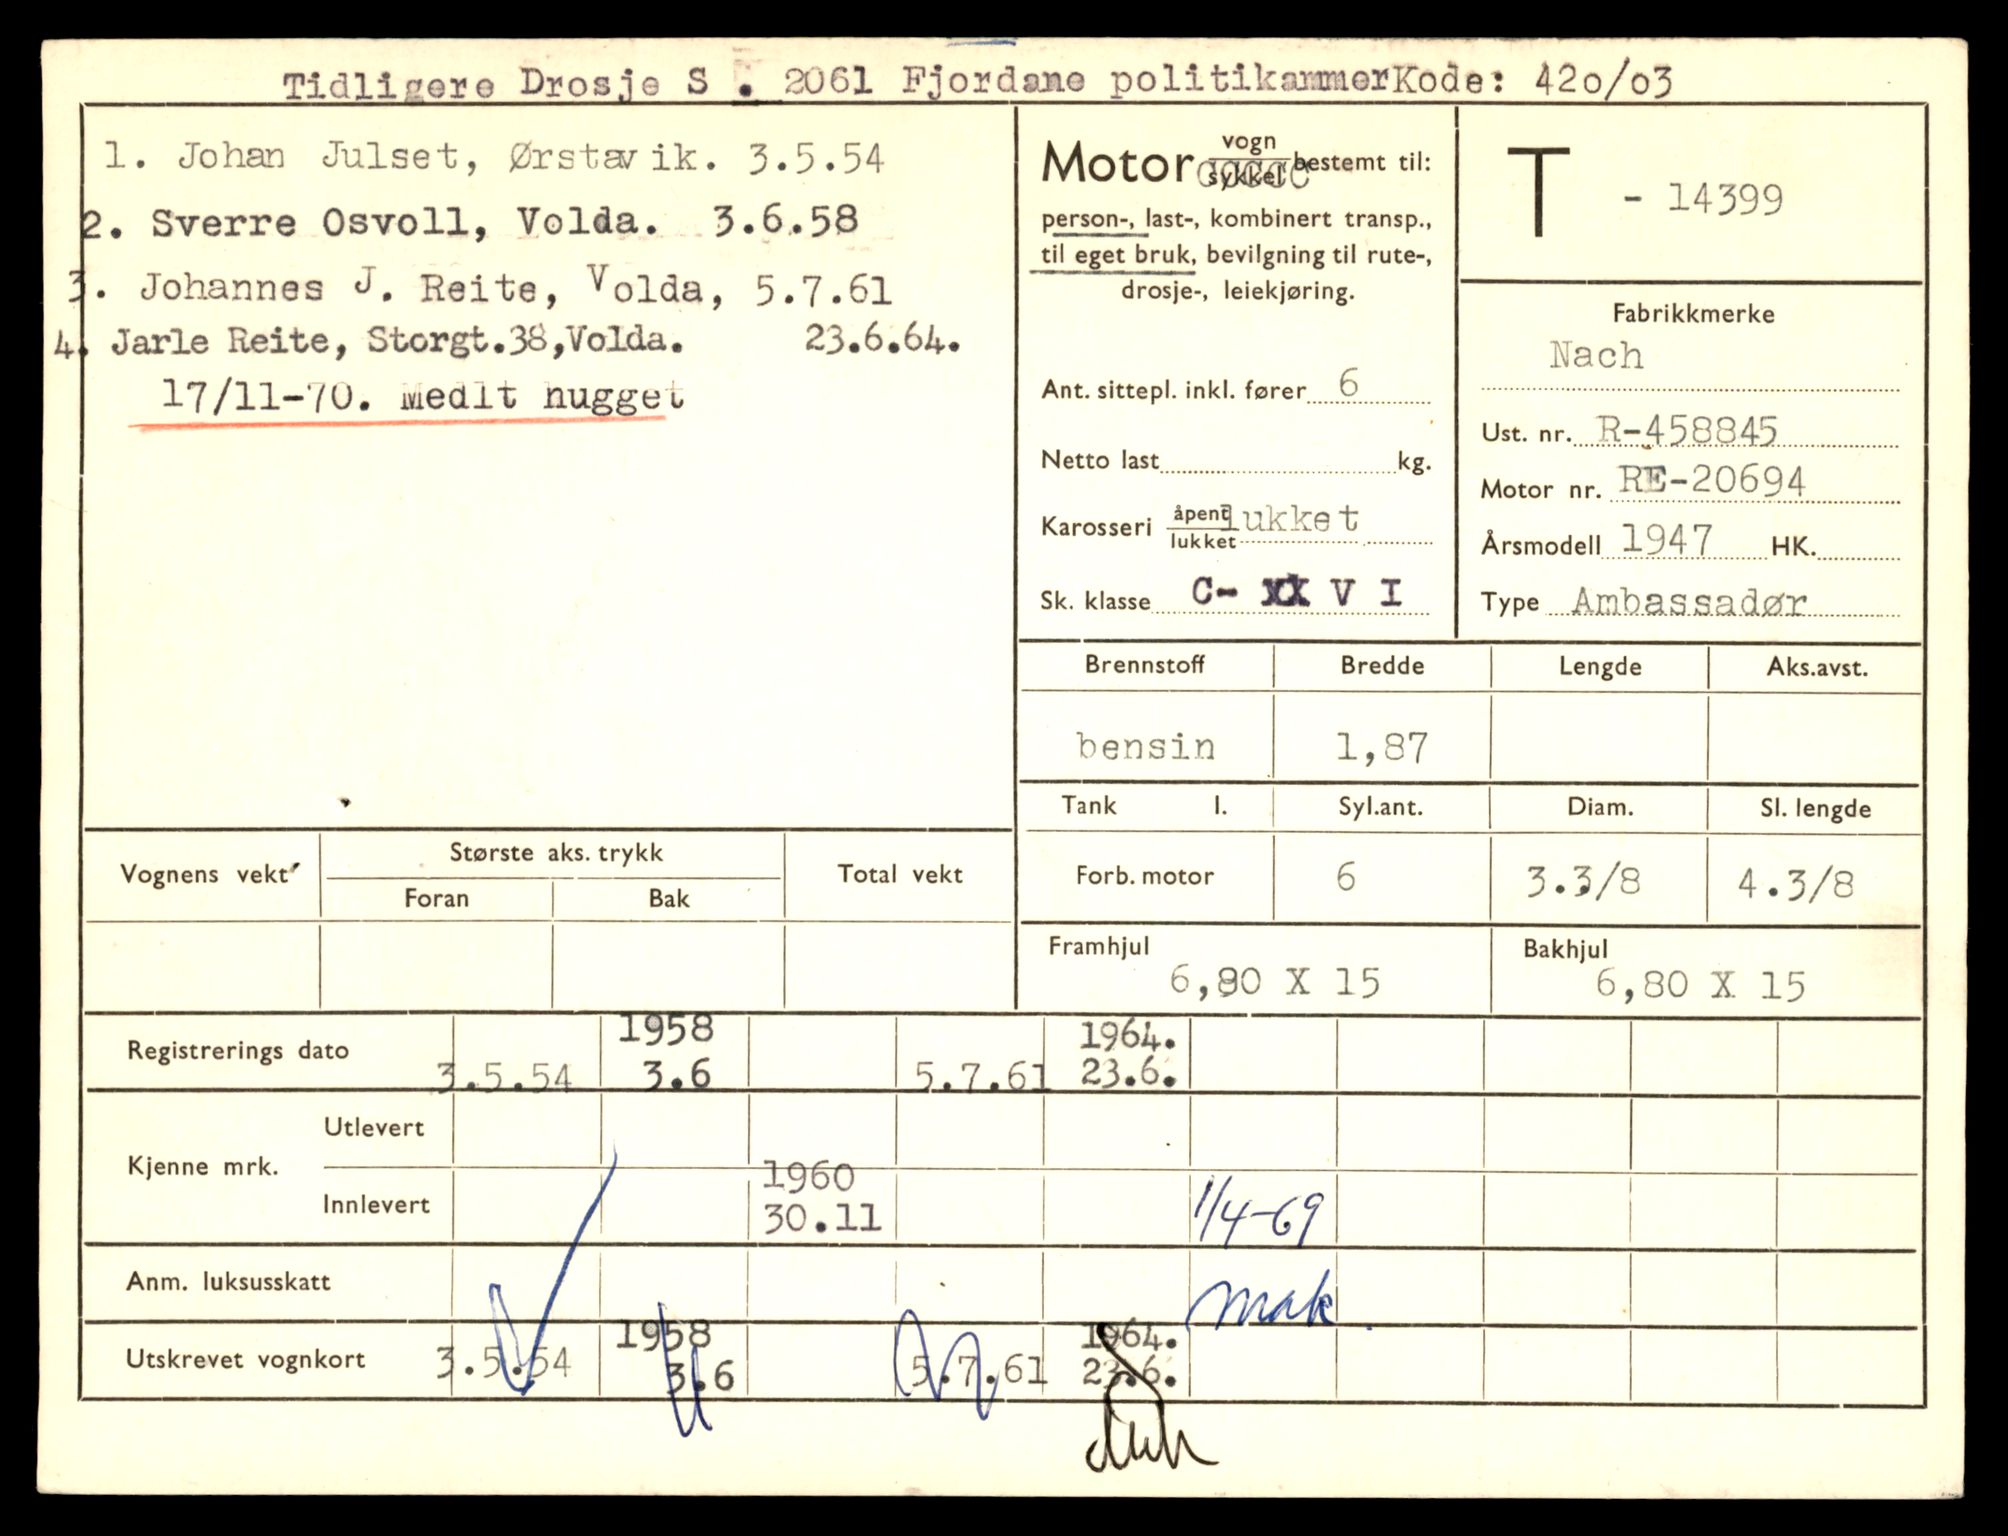 Tidligere Drosje S . 2061 Fjordane politikammerKode: 42o/o3
1. Johan Julset, Ørstavik. 3.5.54
2. Sverre Osvoll, Volda. 3.6.58
3. Johannes J. Reite, Volda, 5.7.61
4. Jarle Reite, Storgt.38,Volda. 23.6.64.
17/11-70. Medlt hugget
Motor vogn sykkel bestemt til:
person-, last-, kombinert transp.,
til eget bruk, bevilgning til rute-,
drosje-, leiekjøring.
Ant. sittepl. inkl. fører 6
Netto last kg.
Karosseri åpent lukket lukket
Sk. klasse C- XX V I
T - 14399
Fabrikkmerke
Nach
Ust. nr. R-458845
Motor nr. RE-20694
Årsmodell 1947 HK.
Type Ambassadør
Brennstoff Bredde Lengde Aks.avst.
bensin 1,87
Tank l. Syl.ant. Diam. Sl. lengde
Forb. motor 6 3.3/8 4.3/8
Framhjul Bakhjul
6,80 X 15 6,80 X 15
Vognens vekt Største aks. trykk Total vekt
Foran Bak
Registrerings dato 3.5.54 1958 3.6 5.7.61 1964. 23.6.
Kjenne mrk. Utlevert
Innlevert 1960 30.11 1/4-69
Anm. luksusskatt mak
Utskrevet vognkort 3.5.54 1958 3.6 5.7.61 1964. 23.6.